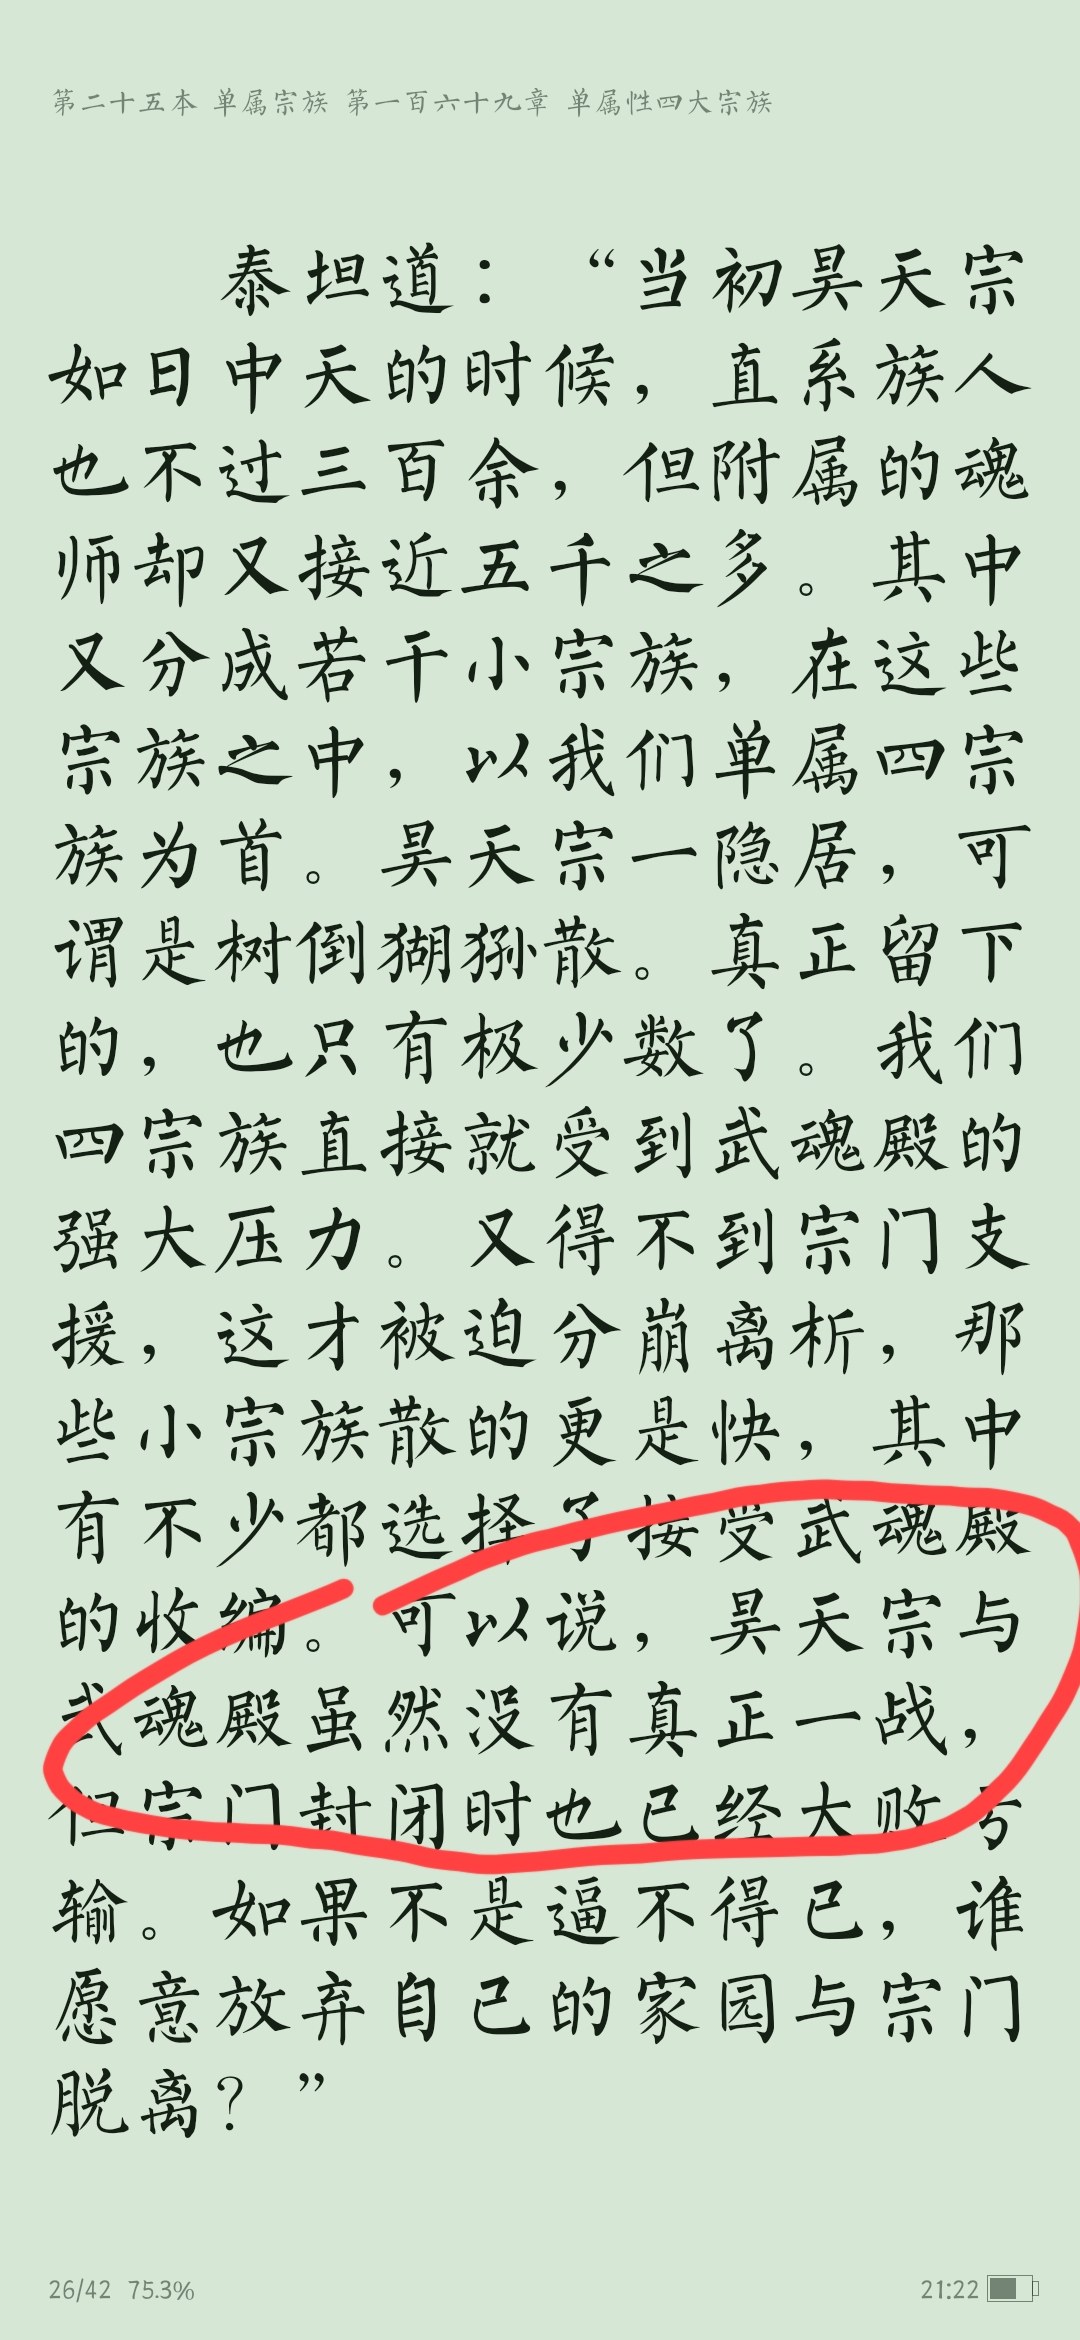 第二十五本 单属宗族 第一百六十九章 单属性四大宗族
泰坦道：“当初昊天宗
如日中天的时候，直系族人
也不过三百余，但附属的魂
师却又接近五千之多。其中
又分成若干小宗族，在这些
宗族之中，以我们单属四宗
族为首。昊天宗一隐居，可
谓是树倒猢狲散。真正留下
的，也只有极少数了。我们
四宗族直接就受到武魂殿的
强大压力。又得不到宗门支
援，这才被迫分崩离析，那
些小宗族散的更是快，其中
有不少都选择了接受武魂殿
的收编。可以说，昊天宗与
武魂殿虽然没有真正一战，
但宗门封闭时也已经大败亏
输。如果不是逼不得已，谁
愿意放弃自己的家园与宗门
脱离？”
26/42 75.3%
21:22